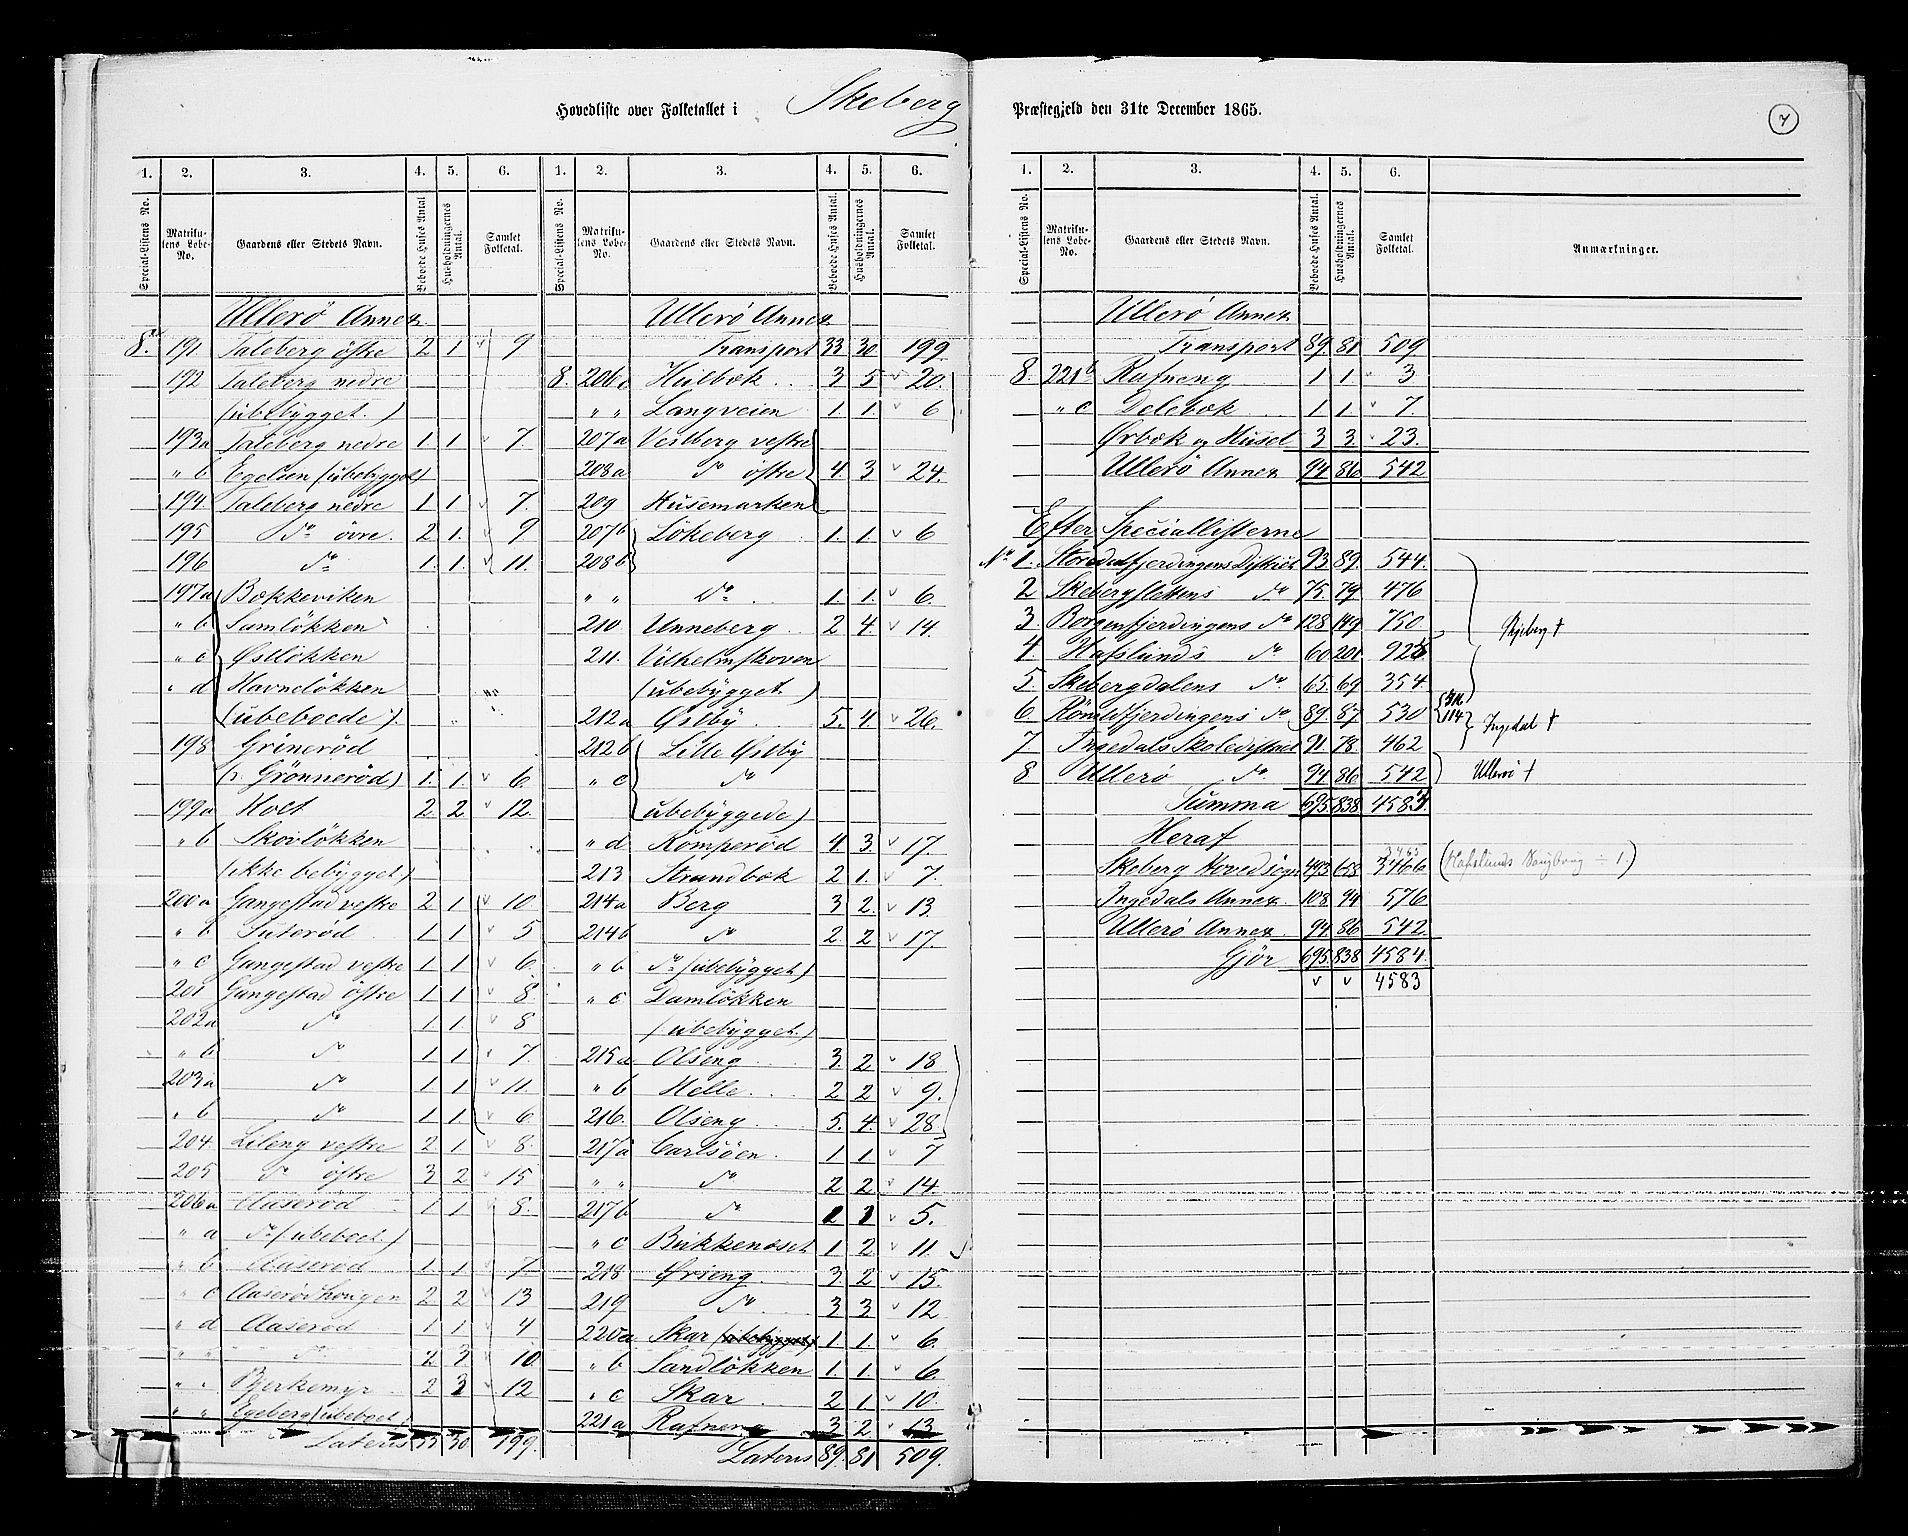 Hovedliste over Folketallet i Skeberg Præstegjeld den 31te December 1865.
7
1. 2. 3. 4. 5. 6. 1. 2. 3. 4. 5. 6.
Special-Listens No. Matrikulens Løbe-No. Gaardens eller Stedets Navn. Beboede Huses Antal. Husholdningernes Antal. Samlet Folketal. Special-Listens No. Matrikulens Løbe-No. Gaardens eller Stedets Navn. Beboede Huses Antal. Husholdningernes Antal. Samlet Folketal.
Ullerö Annex
8. 191. Taleberg östre 2 1 v 9
192 Taleberg nedre
(ubebygget.)
193a Taleberg nedre 1 1 v 7.
" b Egelien (ubebygget)
194 Taleberg nedre 1 1 v 7.
195 Do övre. 2 1. v 9
196 Do 1. 1. v 11.
197a Bækkeviken
" b Samlökken
" c Østlökken
" d Havnelökken
(ubeboede).
198 Grinerød
(v. Grönneröd) 1. 1. v 6.
199a Holt 2 2 v 12.
" b Skovlökken
(ikke bebygget)
200a Gangestad vestre 2 1 v 10.
" b Suteröd 1 1 v 5
" c Gangestad vestre 1 1 v 6.
201 Gangestad östre 1 1 v 8.
202a Do 1 1. v 8
" b Do 1 1 v 7.
203a Do 1 1 v 11.
" b Do 1 1 v 6
204. Lileng vestre 2 1 v 8.
205 Do östre 3 2 v 15
206a Aaseröd 1 1 v 8.
" a Do (ubeboet.)
" b Aaseröd 1 1 v 7.
" c Aaserödhougen 2 2 v 13
" d Aaseröd 1 1 v 4
" " Do 2 2 v 10.
" " Bjerkemyr 2 3 v 12
" " Egeberg (ubeboet.)
Lateris 33 30 199.
Ullerö Annex
Transport 33 30 199
8. 206c Hulbæk 3 5 v 20.
" " Langveien 1. 1. v 6
207a Vestberg vestre
208a Do östre 4 3 v 24.
209 Husemarken
207b Lökeberg 1. 1. v 6
208b
" " Do 1 1. v 6.
210 Unneberg 2 4. v 14.
211. Vilhelmskoven
(ubebygget.)
212a Østby 5. 4 v 26.
212b Lille Østby
" c Do
ubebyggede)
" d Komperöd 4. 3. v 17.
213 Strandbæk 2 1. v 7.
214a Berg 3 2. v 13.
214b Do 2 2 v 17.
" b Do (ubebygget.)
" c Damlökken
(ubebygget.)
215a Olseng 3. 2 v 18
" b Helle 2 2 v 9.
216. Olseng 5. 4. v 28
217a Carlsöen 1 1. v 7
" " Do 2 2 v 14.
217b Do 1 1 v 5.
" c Bukkenæset 1 2 v 11.
218 Ørseng 3 2 v 15.
219 Do 3 3 v 12
220a Skar (ubebygget) 1 1. v 6.
" b Sandlökken 1. 1. v 6
" c Skar 2 1 v 10.
221a Rafneng 3 2 v 13
Lateris 89. 81 509.
1. 2. 3. 4. 5. 6.
Special-Listens No. Matrikulens Løbe-No. Gaardens eller Stedets Navn. Beboede Huses Antal. Husholdningernes Antal. Samlet Folketal. Anmærkninger.
Ullerö Annex
Transport 89. 81 509
8. 221b Rafneng 1 1. 3
" c Delebæk 1 1. v 7.
Ørbæk og Huset 3 3 v 23.
Ullerö Annex 94 86 542
Efter Speciallisterne
No 1. Storedalfjerdingens Distrikt 93. 89. 544
2 Skebergslettens Do 75. 79 476
3. Borgenfjerdingens Do 128 149 750 Skjeberg †
4. Hafslunds Do 60 201 925
5. Skebergdalens Do 65. 69. 354
6. Römelsfjerdingens Do 89. 87. 530 114 Ingedal †
7 Ingedals Skoledistrikt 91 78. 462
8 Ullerö Do 94 86 542 Ullerö †
Summa 695. 838 4583
Heraf
Skeberg Hovedsogn 493 658 3466 3465 (Hafslunds ÷ 1.)
Ingedals Annex 108. 94 576
Ullerö Annex 94. 86 542
Gjör 695. 838 4584.
v v 4583